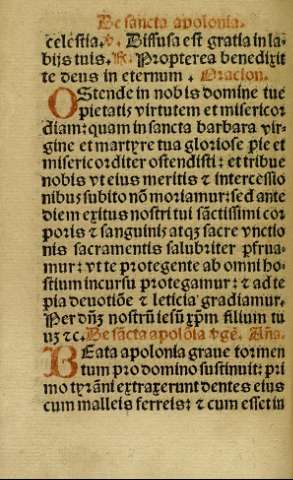 De sancta apolonia.
celestia. ℣. Diffusa est gratia in la-
bijs tuis. ℟. Propterea benedixit
te deus in eternum. Oracion.
OStende in nobis domine tue
pietatis virtutem et misericor
diam: quam in sancta barbara vir-
gine et martyre tua gloriose pie et
misericorditer ostendisti: et tribue
nobis vt eius meritis ⁊ intercessio
nibus subito nō moriamur: sed ante
diem exitus nostri tui sāctissimi cor
poris ⁊ sanguinis atqꝫ sacre vnctio
nis sacramentis salubriter ꝑfrua-
mur: vt te protegente ab omni ho-
stium incursu protegamur: ⁊ ad te
pia deuotiōe ⁊ leticia gradiamur.
Per dn̄ꝫ nostrū iesū xp̄m filium tu
uꝫ ⁊c. De sācta apolōia vgē. Añā.
BEata apolonia graue tormen
tum pro domino sustinuit: pri
mo tyrāni extraxerunt dentes eius
cum malleis ferreis: ⁊ cum esset in